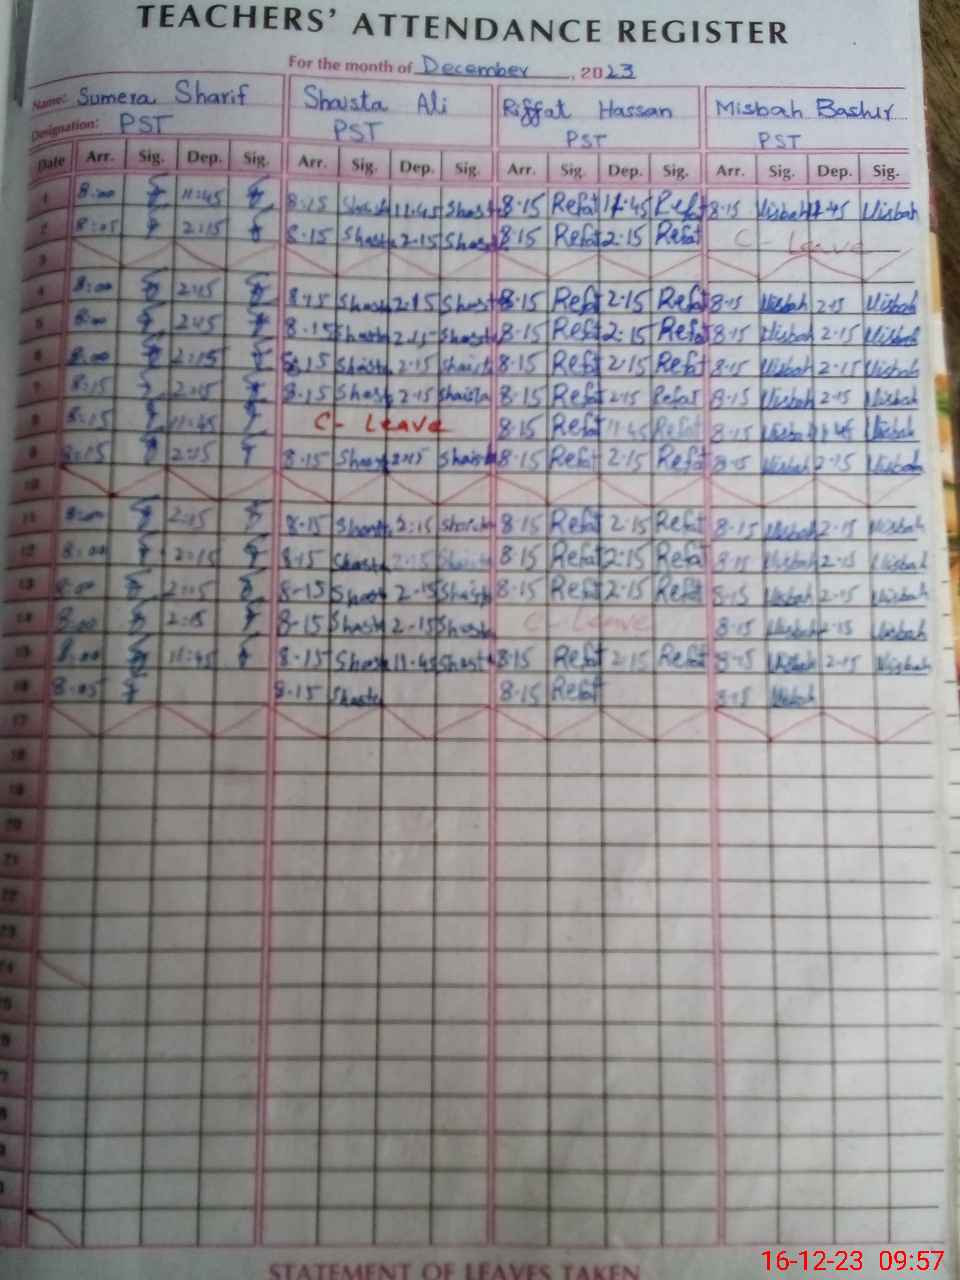 TEACHERS' ATTENDANCE REGISTER
For the month of December, 2023
Name: Sumera Sharif Shaista Ali Riffat Hassan Misbah Bashir
Designation: PST PST PST PST
Date Arr. Sig. Dep. Sig. Arr. Sig. Dep. Sig. Arr. Sig. Dep. Sig. Arr. Sig. Dep. Sig.
1 8:00 11:45 8-15 11-45 8-15 Refat 11-45 Refat 8-15 Misbah 11-45 Misbah
2 8:05 2:15 8-15 2-15 8-15 Refat 2-15 Refat C- Leave
3
4 8:00 2:15 8-15 2-15 8-15 Refat 2-15 Refat 8-15 Misbah 2-15 Misbah
5 8:00 2:15 8-15 2-15 8-15 Refat 2-15 Refat 8-15 Misbah 2-15 Misbah
6 8:00 2:15 8-15 2-15 8-15 Refat 2-15 Refat 8-15 Misbah 2-15 Misbah
7 8:15 2:15 8-15 2-15 Shaista 8-15 Refat 2-15 Refat 8-15 Misbah 2-15 Misbah
8 8:15 11:45 C- Leave 8-15 Refat 11-45 Refat 8-15 Misbah 11-45 Misbah
9 8:15 2:15 8-15 2-15 8-15 Refat 2-15 Refat 8-15 Misbah 2-15 Misbah
10
11 8:00 2:15 8-15 2-15 8-15 Refat 2-15 Refat 8-15 Misbah 2-15 Misbah
12 8:00 2:15 8-15 2-15 8-15 Refat 2-15 Refat 8-15 Misbah 2-15 Misbah
13 8:00 2:15 8-15 2-15 8-15 Refat 2-15 Refat 8-15 Misbah 2-15 Misbah
14 8:00 2:15 8-15 2-15 C- Leave 8-15 Misbah 2-15 Misbah
15 8:00 11:45 8-15 11-45 8-15 Refat 2-15 Refat 8-15 Misbah 2-15 Misbah
16 8:05 8-15 8-15 Refat 8-15 Misbah
17
18
19
20
21
22
23
STATEMENT OF LEAVES TAKEN
16-12-23 09:57